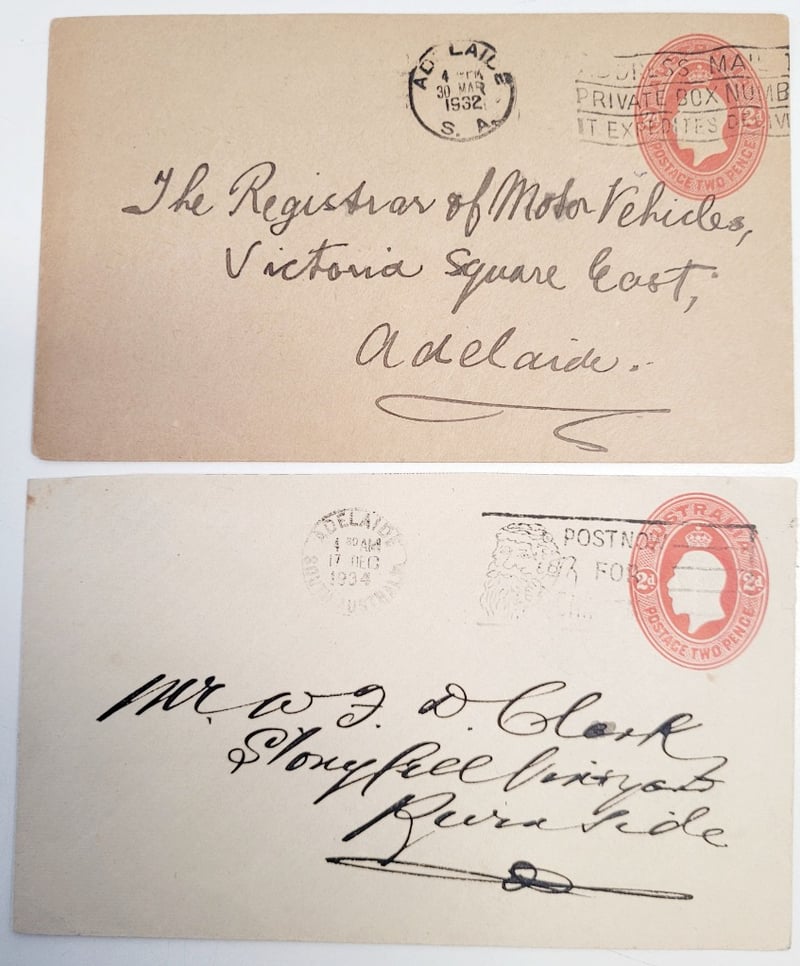 ADELAIDE
4 PM
30 MAR
1932
S. A.
ADDRESS MAIL
PRIVATE BOX NUMB
IT EXPEDITES DELIV
2d 2d
POSTAGE TWO PENCE
The Registrar of Motor Vehicles,
Victoria Square East,
Adelaide.
ADELAIDE
AM
17 DEC
1934
SOUTH AUSTRALIA
POST NOW
FOR
AUSTRALIA
2d 2d
POSTAGE TWO PENCE
Mr. W F. D. Clark
Stonyfell Vinyard
Burnside